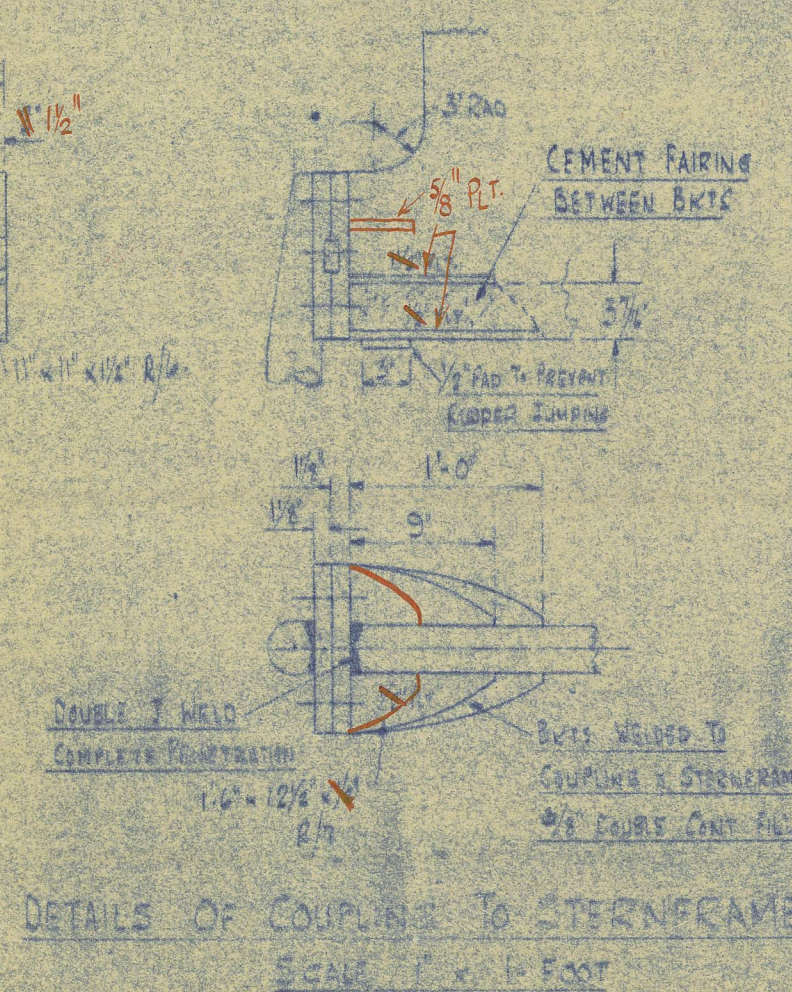 1½"
3" RAD
CEMENT FAIRING
BETWEEN BKTS
5/8" PLT.
11" x 11" x 1½" R/6
3"
½" PAD TO PREVENT
RUDDER JUMPING
1½"
1'-0"
1⅛"
9"
DOUBLE J WELD
COMPLETE PENETRATION
BKTS WELDED TO
COUPLING & STERNFRAM
1'-6" x 12½" x
R/7
3/8" DOUBLE CONT FIL
DETAILS OF COUPLING TO STERNFRAME
SCALE 1" = 1 FOOT